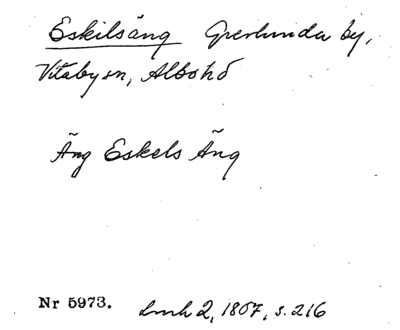 Eskilsäng Grevlunda by,
Vitaby sn, Albo hd
Äng Eskels Äng
Nr 5973. Lmh 2, 1807, s. 216